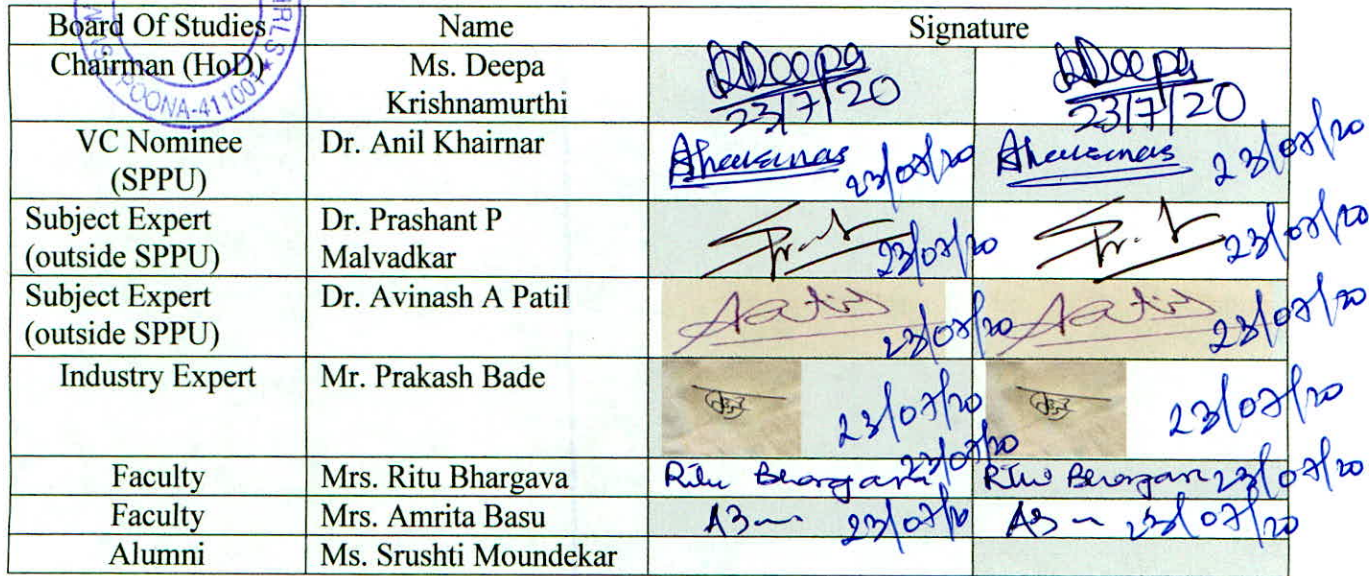 Board Of Studies Name Signature
Chairman (HoD) Ms. Deepa Krishnamurthi DDeepa 23/7/20 DDeepa 23/7/20
POONA-411001
VC Nominee (SPPU) Dr. Anil Khairnar 23/07/20 23/07/20
Subject Expert (outside SPPU) Dr. Prashant P Malvadkar 23/07/20 23/07/20
Subject Expert (outside SPPU) Dr. Avinash A Patil 23/07/20 23/07/20
Industry Expert Mr. Prakash Bade 23/07/20 23/07/20
Faculty Mrs. Ritu Bhargava Ritu Bhargava 23/07/20 Ritu Bhargava 23/07/20
Faculty Mrs. Amrita Basu 23/07/20 23/07/20
Alumni Ms. Srushti Moundekar